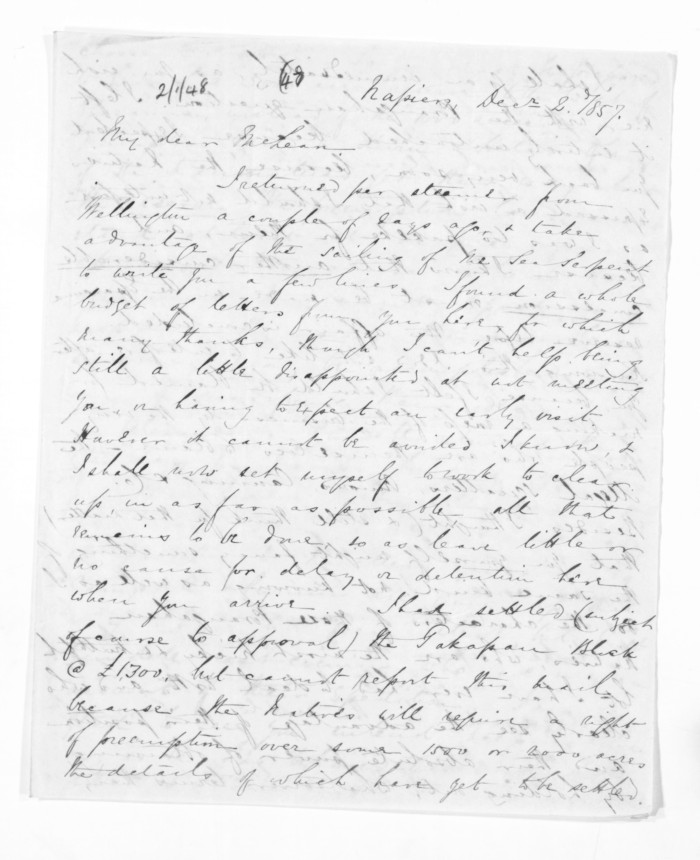 2/1/48 48 Napier, Decr 2. 1857.
My dear McLean
I returned per steamer from
Wellington a couple of days ago, & take
advantage of the sailing of the Sea Serpent
to write you a few lines. I found a whole
budget of letters from you here, for which
many thanks, though I can't help being
still a little disappointed at not meeting
you, or having to expect an early visit.
However it cannot be avoided I know, &
I shall now set myself to work to clear
up in as far as possible all that
remains to be done so as leave little or
no cause for delay or detention here
when you arrive. I had settled (subject
of course to approval) the Takapau Block
@ £1300. but cannot report this mail,
because the Natives will require a right
of preemption over some 1500 or 2000 acres
the details of which have yet to be settled.